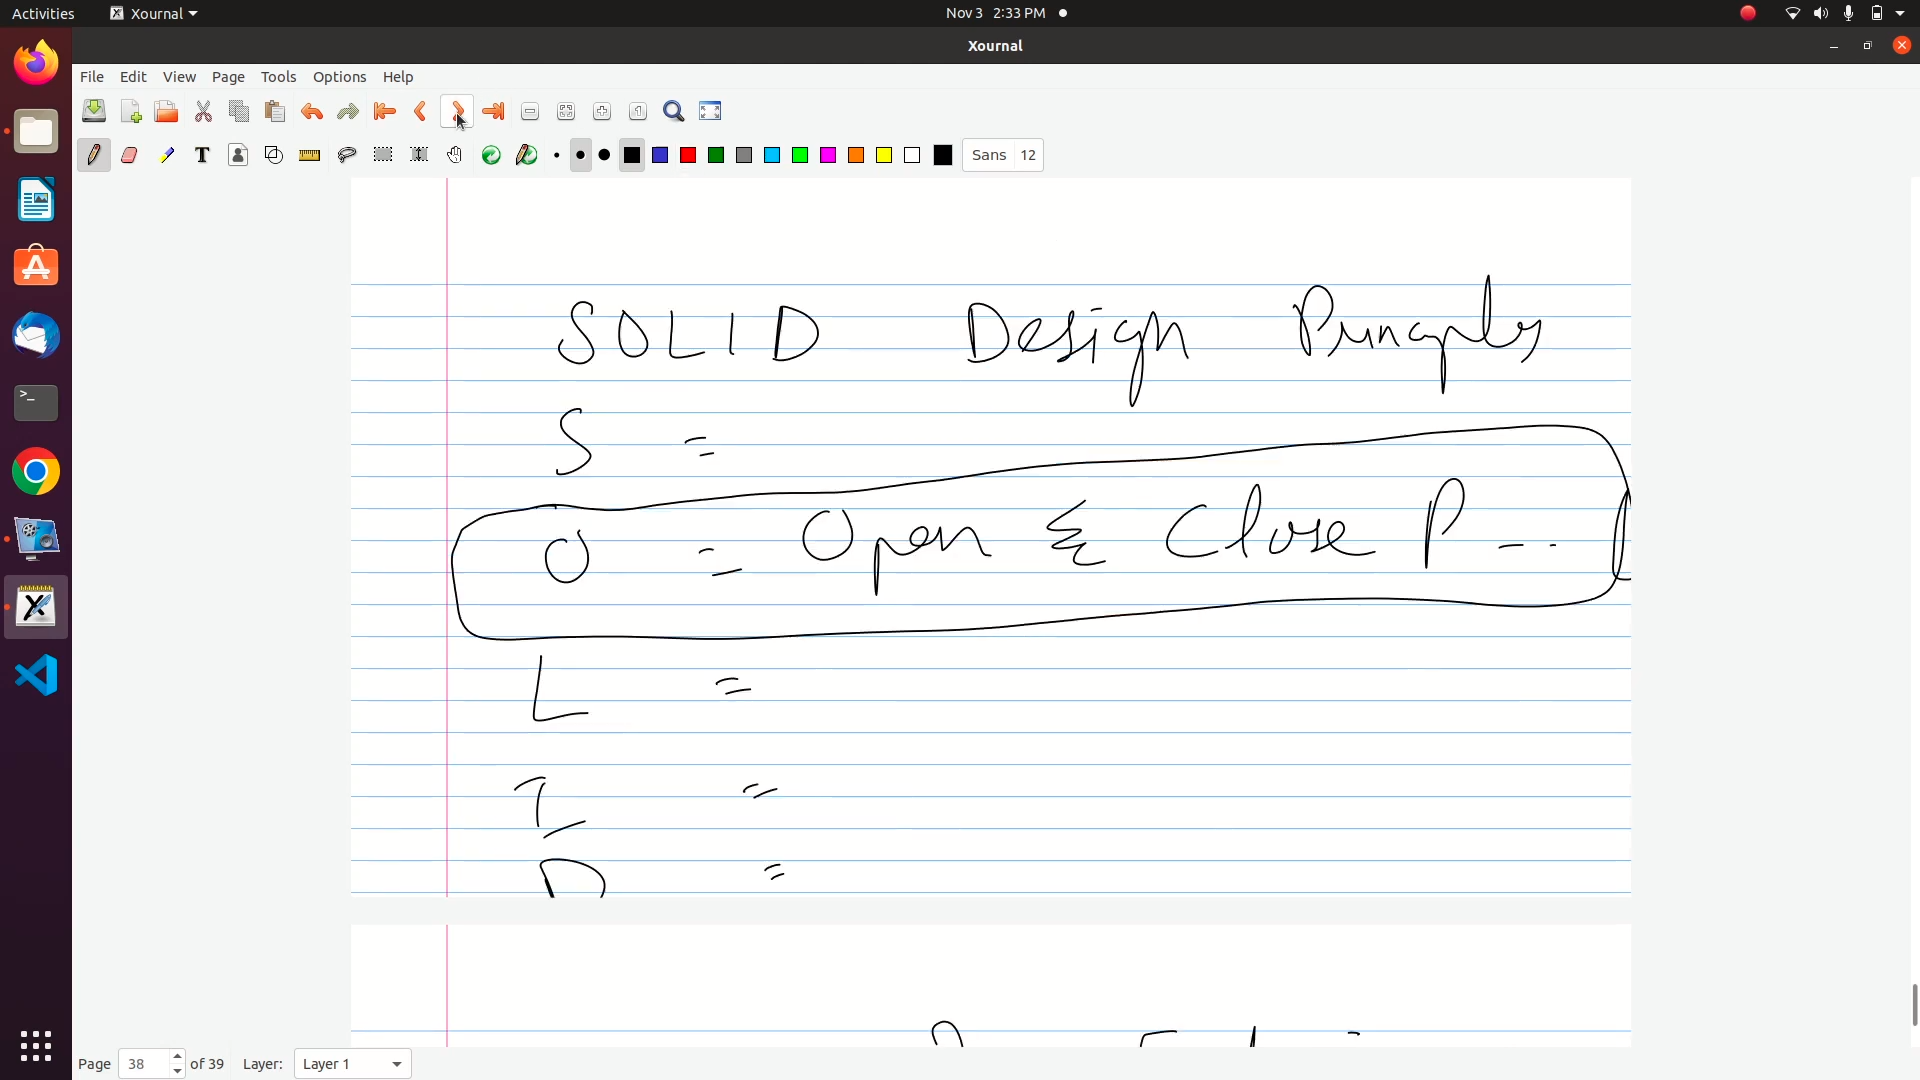 Activities Xournal Nov 3 2:33 PM
Xournal
File Edit View Page Tools Options Help
Sans 12
SOLID Design Principles
S =
O = Open & Close P - -
L =
I =
D =
Page 38 of 39 Layer: Layer 1